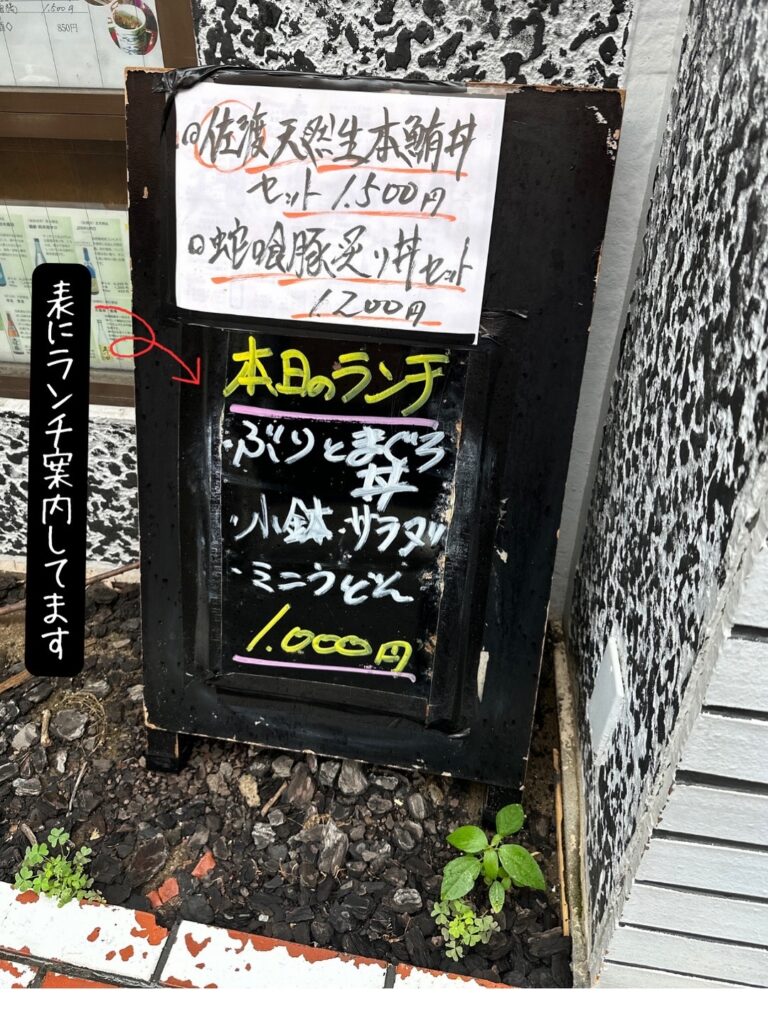 1.500円
850円
◎佐渡天然生本鮪丼
セット 1.500円
◎蛇喰豚炙り丼セット
1.200円
本日のランチ
・ぶりとまぐろ
丼
・小鉢・サラダ
・ミニうどん
1.000円
表にランチ案内してます